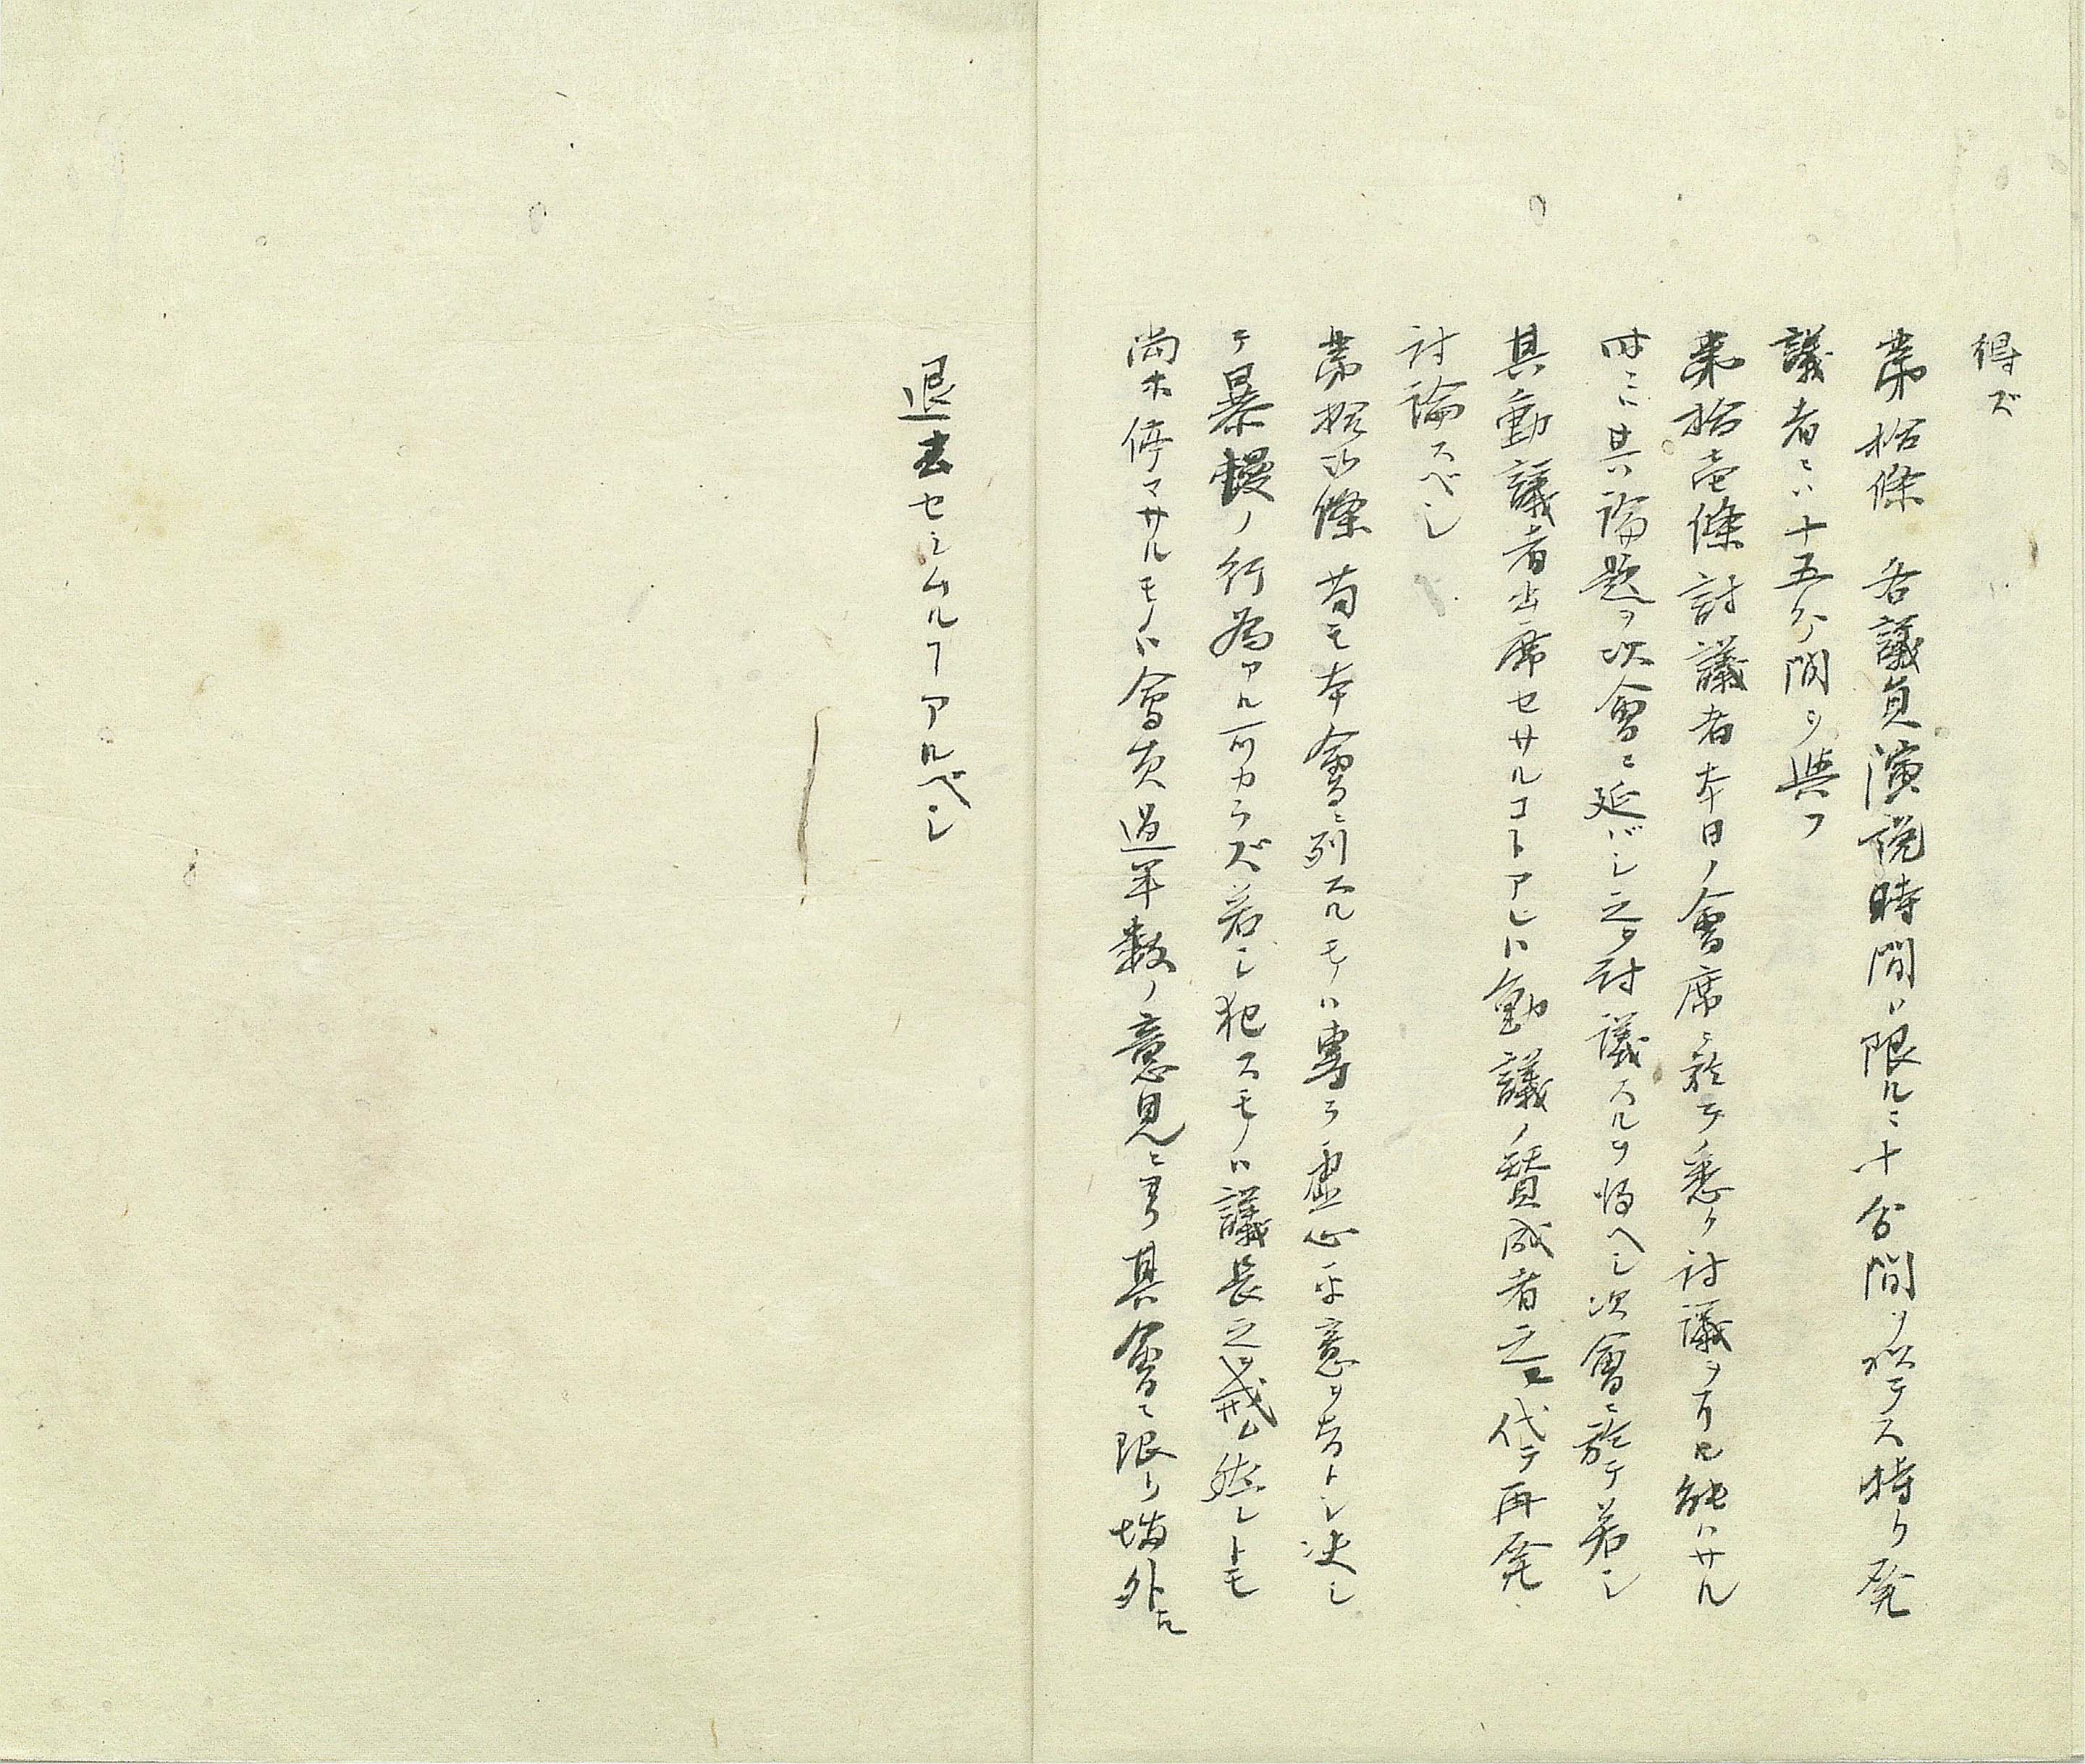 得ズ
第拾條　各議員演説時間ハ限ルニ十分間ヲ以テス特リ発
議者ニハ十五分間ヲ與フ
第拾壱條　討議者本日ノ會席ニ於テ悉ク討議ヲ了ル能ハサル
時ニハ其論題ヲ次會ニ延バシ之ヲ討議スルヲ得ヘシ次會ニ於テ若シ
其動議者出席セサルコトアレハ動議ノ賛成者之ニ代テ再発
討論スベシ
第拾弐條　苟モ本會ニ列スルモノハ専ラ虚心平意ヲ旨トシ決シ
テ暴慢ノ行為アル可カラズ若シ犯スモノハ議長之ヲ戒ム然レトモ
尚ホ停マサルモノハ會員過半数ノ意見ニ寄リ其會ニ限リ場外ニ
退去セシムルヿアルベシ